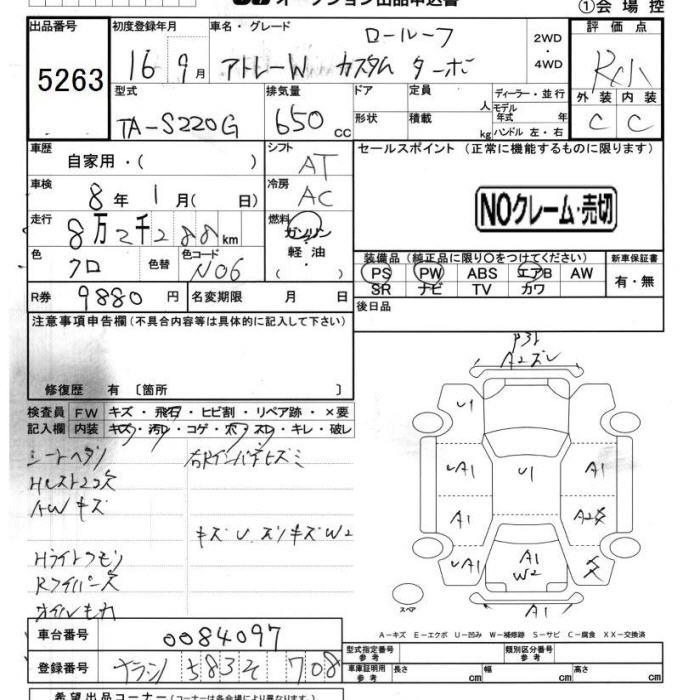 オークション出品申込書
①会場控
出品番号 初度登録年月 車名・グレード ロールーフ 2WD ・ 4WD 評価点
5263 16 9月 アトレーW カスタム ターボ
型式 排気量 ドア 定員 人 ディーラー・並行 外装 内装
TA-S220G 650 CC 形状 積載 kg モデル年式 年 ハンドル 左・右 C C
車歴 自家用・( ) シフト AT セールスポイント (正常に機能するものに限ります)
車検 8年 1月( 日) 冷房 AC
NOクレーム・売切
走行 8万2千288km 燃料 ガソリン 軽油 ( )
色 クロ 色替 色コード N06
装備品 (純正品に限り○をつけてください) 新車保証書
PS PW ABS エアB AW 有・無
SR ナビ TV カワ
R券 9880円 名変期限 月 日 後日品
注意事項申告欄(不具合内容等は具体的に記入して下さい)
修復歴 有 〔箇所 〕
検査員 FW キズ・飛石・ヒビ割・リペア跡・×要
記入欄 内装 キズ・汚レ・コゲ・穴・スレ・キレ・破レ
シートヘタリ 右Rインパネヒズミ
Hレスト2コ欠
AWキズ
キズ U ズリキズ W2
Hライトクモリ
Rワイパー欠
オイルモレ
A2ズレ
U1
UA1 U1 A1
A1 A2
UA1 A1 W2
スペア A1
A-キズ E-エクボ U-凹み W-補修跡 S-サビ C-腐食 XX-交換済
車台番号 0084097
型式指定番号 参考 類別区分番号 参考
登録番号 583 そ 708
車庫証明用 参考 長さ 幅 高さ cm
希望出品コーナー(コーナーは各会場により異なります)